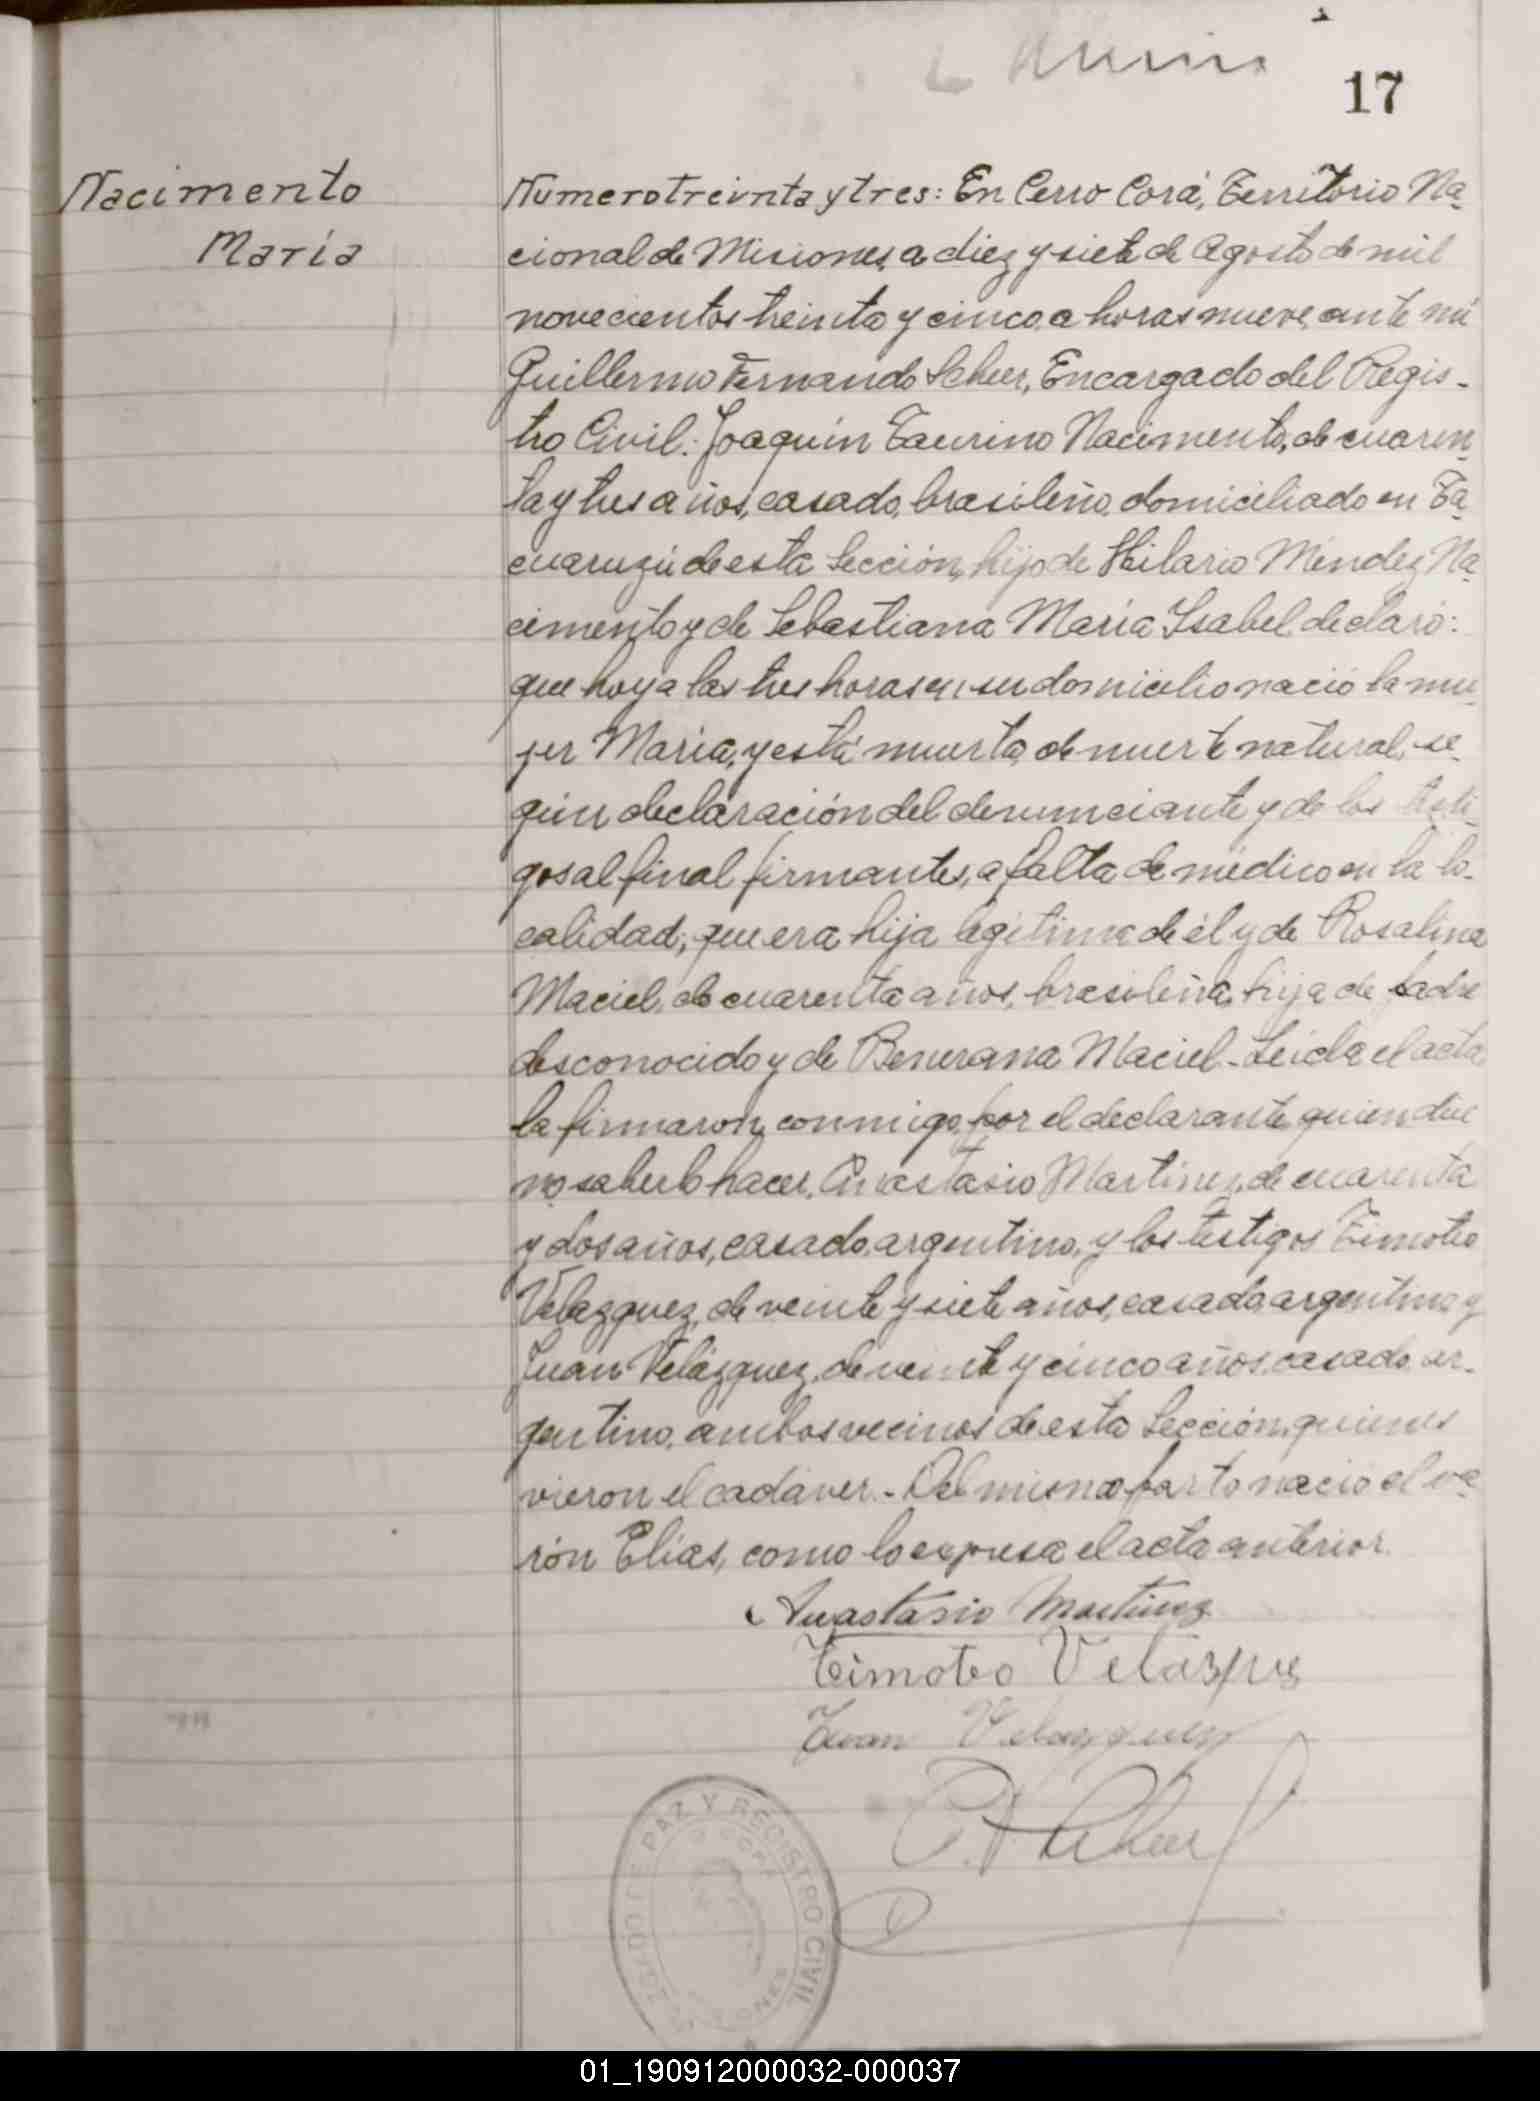 17
Nacimento
María
Numero treinta y tres: En Cerro Corá, Territorio Na-
cional de Misiones, a diez y siete de Agosto de mil
novecientos treinta y cinco, a horas nueve, ante mí
Guillermo Fernando Scheer, Encargado del Regis-
tro Civil: Joaquín Taurino Nacimento, de cuaren-
ta y tres años, casado, brasileño, domiciliado en Ta-
cuaruzú de esta Sección, hijo de Hilario Méndez Na-
cimento y de Sebastiana María Isabel, declaró:
que hoy a las tres horas en su domicilio nació la mu-
jer María, y está muerta, de muerte natural, se-
gún declaración del denunciante y de los testi-
gos al final firmantes, a falta de médico en la lo-
calidad; que era hija legítima de él y de Rosalina
Maciel, de cuarenta años, brasileña, hija de padre
desconocido y de Benerana Maciel.- Leída el acta
la firmaron conmigo, por el declarante quien dice
no saberlo hacer, Anastasio Martinez, de cuarenta
y dos años, casado, argentino, y los testigos Timoteo
Velazquez, de veinte y siete años, casado, argentino y
Juan Velázquez, de veinte y cinco años, casado, ar-
gentino, ambos vecinos de esta Sección, quienes
vieron el cadáver.- Del mismo parto nació el va-
rón Elías, como lo expresa el acta anterior.
Anastasio Martinez
Timoteo Velázque
Juan Velazquez
PAZ Y REGISTRO CIVIL
01_190912000032-000037